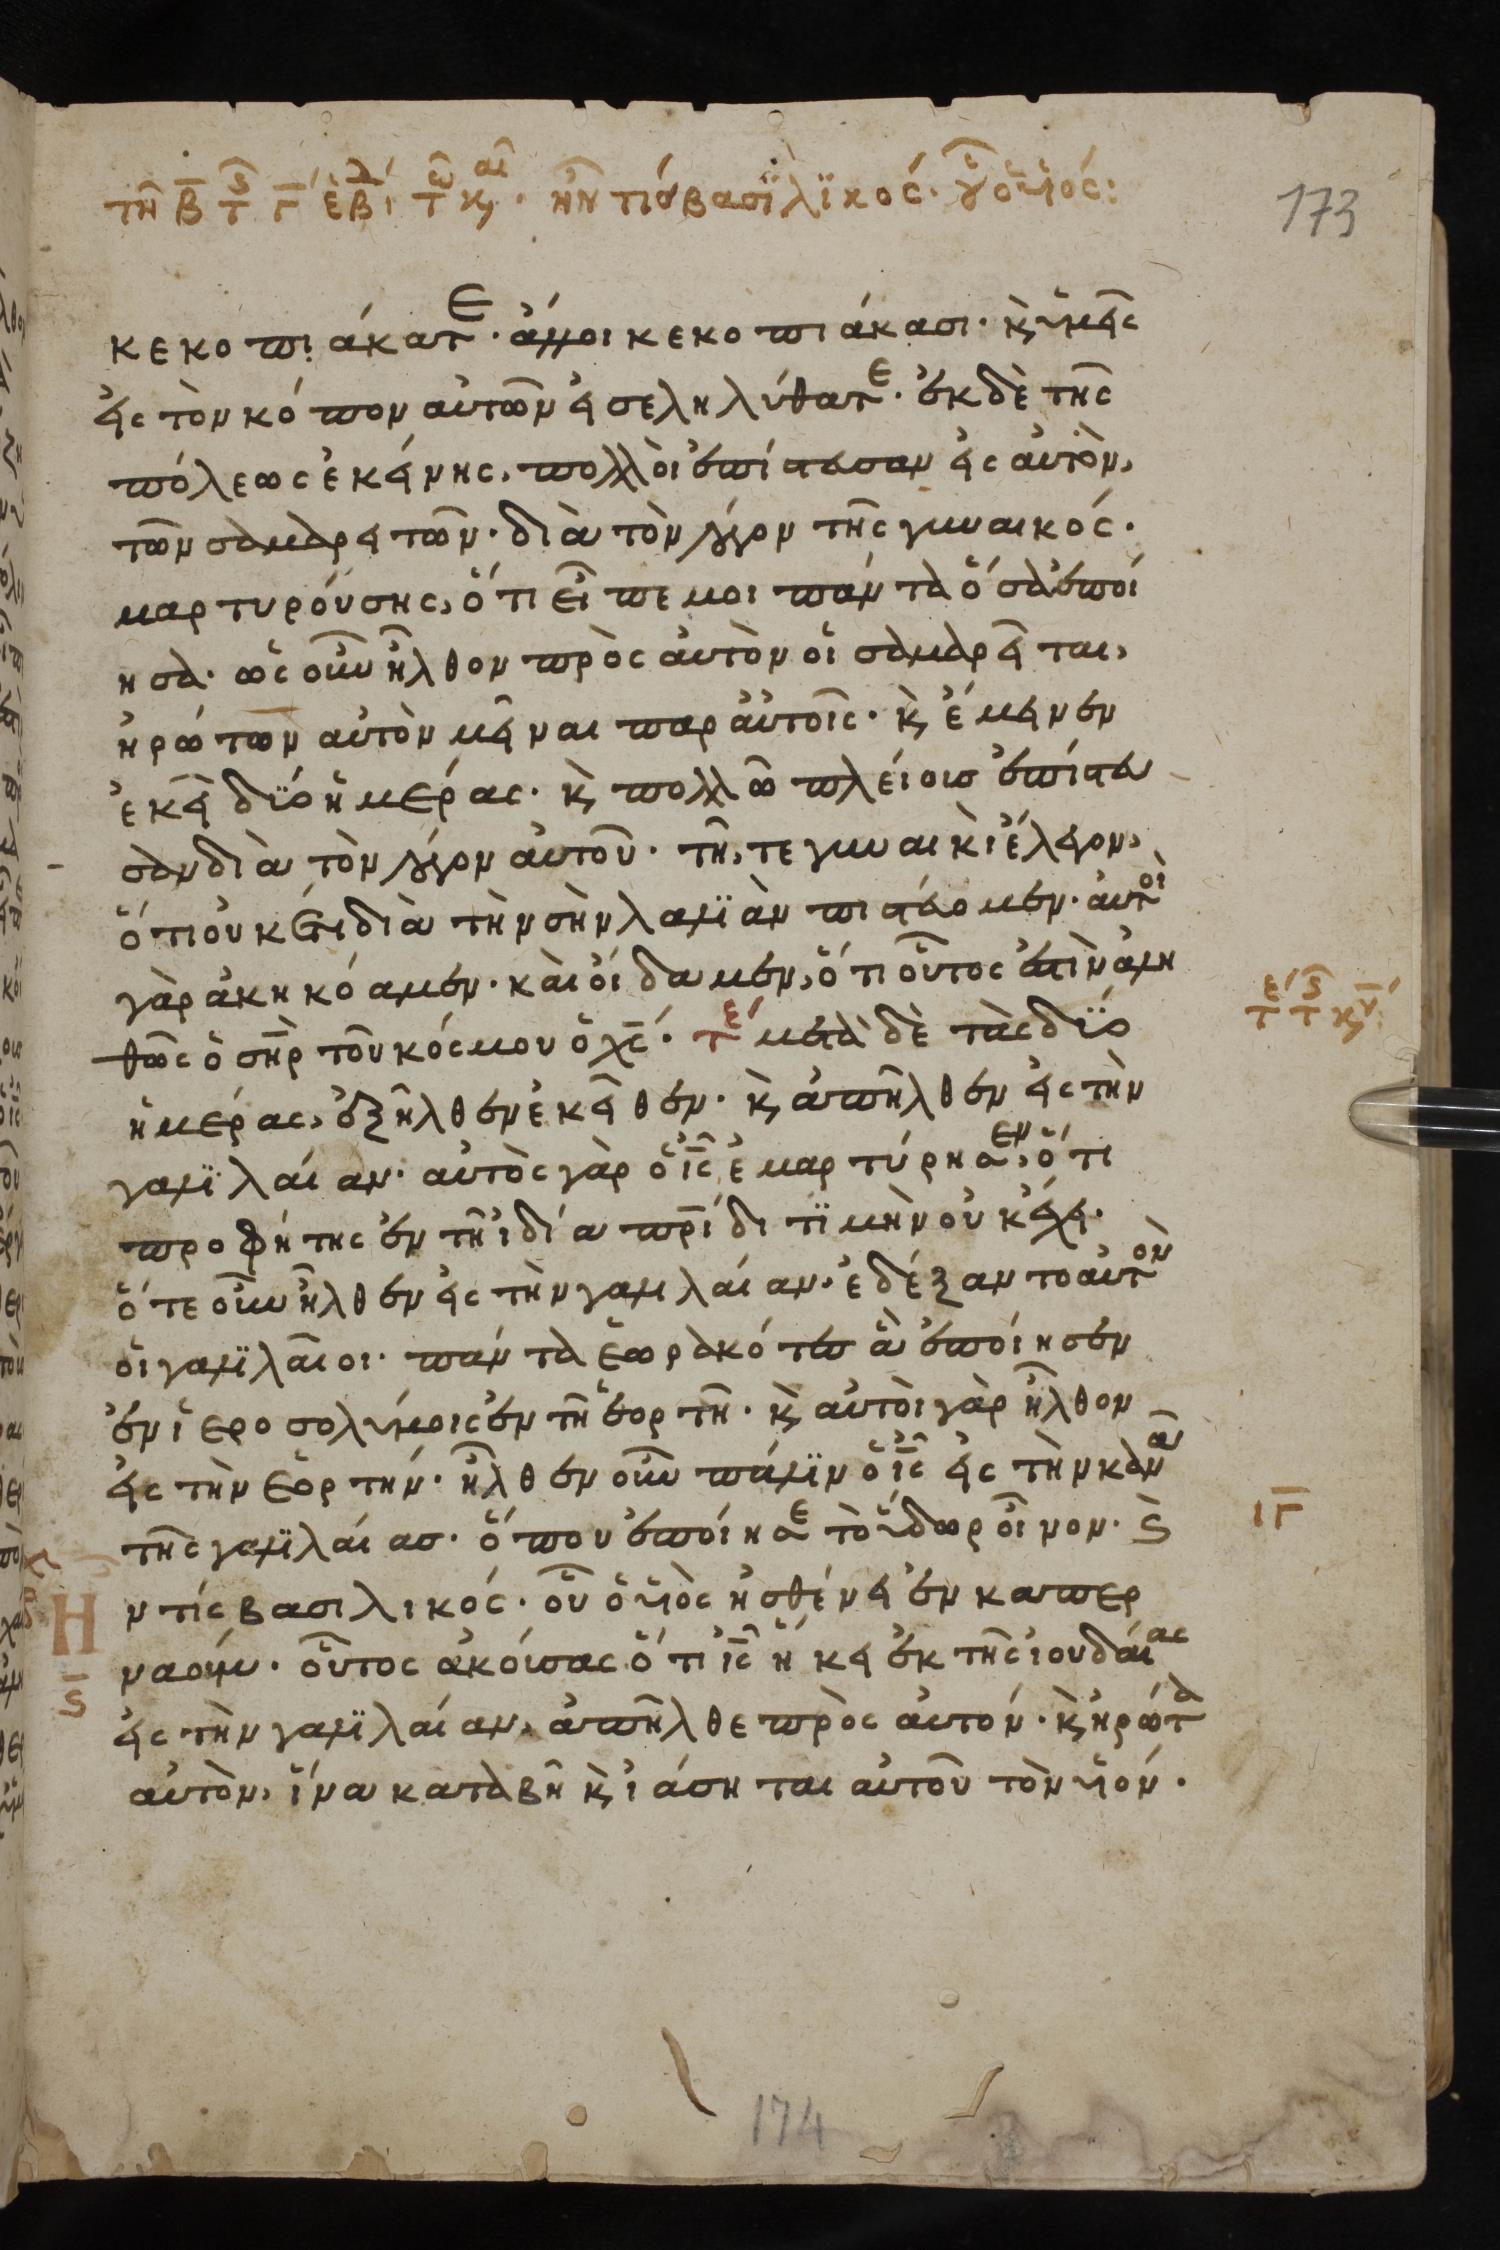 τῆ β τ ϛ γ ἑβδ τω κ αι. ἦν τίσ βασϊλϊκός. οὗ ὁ υἱός:
173
κεκοπιάκατε. ἄλλοι κεκοπιάκασι. κ ὑμεῖς
εἰς τὸν κόπον αὐτῶν εἰσεληλύθατε. ἐκ δὲ τῆς
πόλεως ἐκείνης, πολλοὶ ἐπίστευσαν εἰς αὐτὸν,
τῶν σαμαρειτῶν. διὰ τὸν λόγον τῆς γυναικός.
μαρτυρούσης, ὅτι εἶπε μοι πάντα ὅσα ἐποί
ησα. ὡς οὖν ἦλθον πρὸς αὐτὸν οἱ σαμαρεῖται,
ἠρώτων αὐτὸν μεῖναι παρ αὐτοῖς. κ ἔμεινεν
ἐκεῖ δύο ἡμέρας. κ πολλῶ πλείοισ ἐπίστευ
σαν διὰ τὸν λόγον αὐτοῦ. τῆ, τε γυναικὶ ἔλεγον,
ὅτι οὐκέτι διὰ τὴν σὴν λαλϊὰν πιστεύομεν. αὐτοὶ
γὰρ ἀκηκόαμεν. καὶ οἴδαμεν, ὅτι οὗτος ἐστὶν ἀλη
θῶς ὁ σηρ τοῦ κόσμου ὁ χς. τε μετὰ δὲ τὰς δύο
ε τ ϛ τ κυ
ἡμέρας, ἐξῆλθεν ἐκεῖθεν. κ ἀπῆλθεν εἰς τὴν
γαλϊλαίαν. αὐτὸς γὰρ ὁ ις ἐμαρτύρησεν, ὅτι
προφήτης ἐν τῆ ἰδία πρίδι τϊμὴν οὐκ ἔχει.
ὅτε οὖν ἦλθεν εἰς τὴν γαλιλαίαν. ἐδέξαντο αὐτὸν
οἱ γαλϊλαῖοι. πάντα ἑωρακότες ἃ ἐποίησεν
ἐν ἱεροσολύμοις ἐν τῆ ἑορτῆ. κ αὐτοὶ γὰρ ἦλθον
εἰς τὴν ἑορτήν. ἦλθεν οὖν πάλϊν ὁ ις εἰς τὴν κανᾶ
τῆς γαλϊλαίασ. ὅπου ἐποίησε τὸ ὕδωρ οἶνον. ϛ
ιγ
Η
ν τίς βασιλικός. οὗ ὁ υἱὸς ἠσθένει ἐν καπερ
ναούμ. οὗτος ἀκούσας ὅτι ις ἥκει ἐκ τῆς ἰουδαίας
ϛ
εἰς τὴν γαλϊλαίαν, ἀπῆλθε πρὸς αὐτόν. κ ἠρώτα
αὐτὸν, ἵνα καταβῆ κ ἰάσηται αὐτοῦ τὸν υἱόν.
174